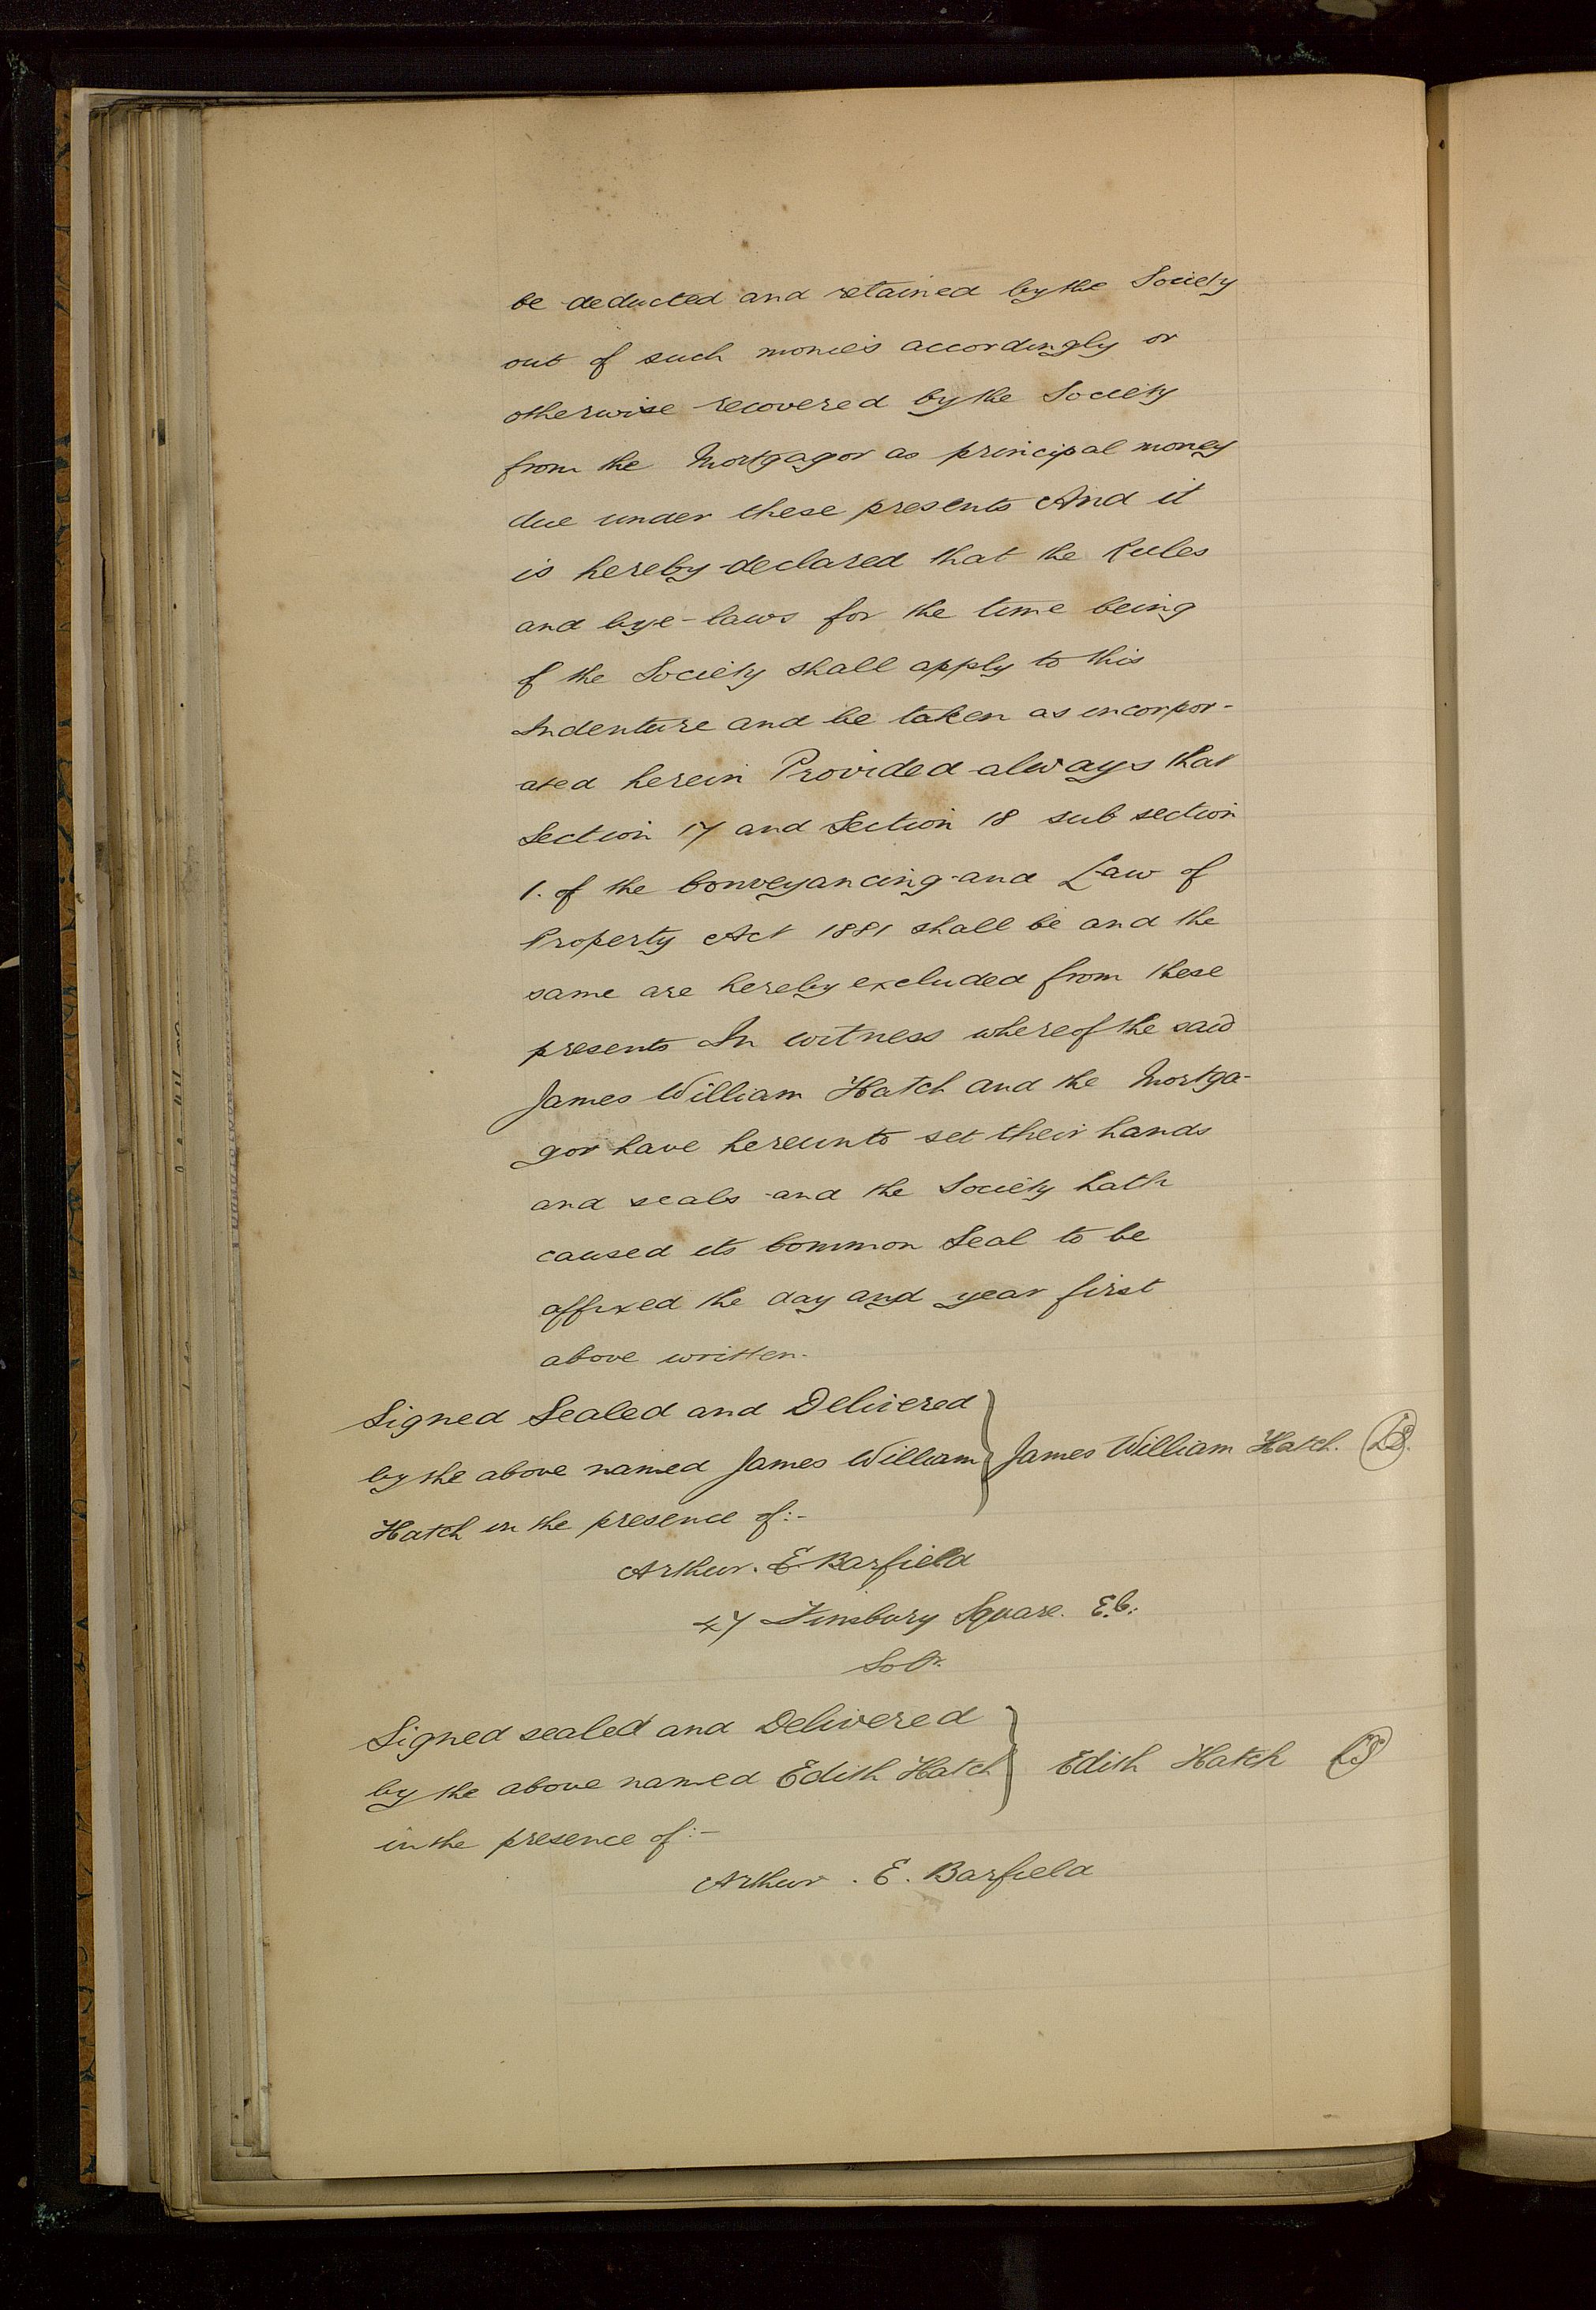 be deducted and retained by the Society
out of such monies accordingly or
otherwise recovered by the Society
from the Mortgagor as principal money
due under these presents And it
is hereby declared that the Rules
and bye-laws for the time being
of the Society shall apply to this
Indenture and be taken as incorpor-
ated herein Provided always that
Section 17 and Section 18 sub section
1. of the Conveyancing and Law of
Property Act 1881 shall be and the
same are hereby excluded from these
presents In witness whereof the said
James William Hatch and the Mortga-
gor have hereunto set their hands
and seals and the Society hath
caused its Common Seal to be
affixed the day and year first
above written.
Signed Sealed and Delivered
by the above named James William } James William Hatch. LS.
Hatch in the presence of:-
Arthur. E. Barfield
47 Finsbury Square. E.C.
Solr.
Signed sealed and Delivered
by the above named Edith Hatch } Edith Hatch LS
in the presence of:-
Arthur. E. Barfield